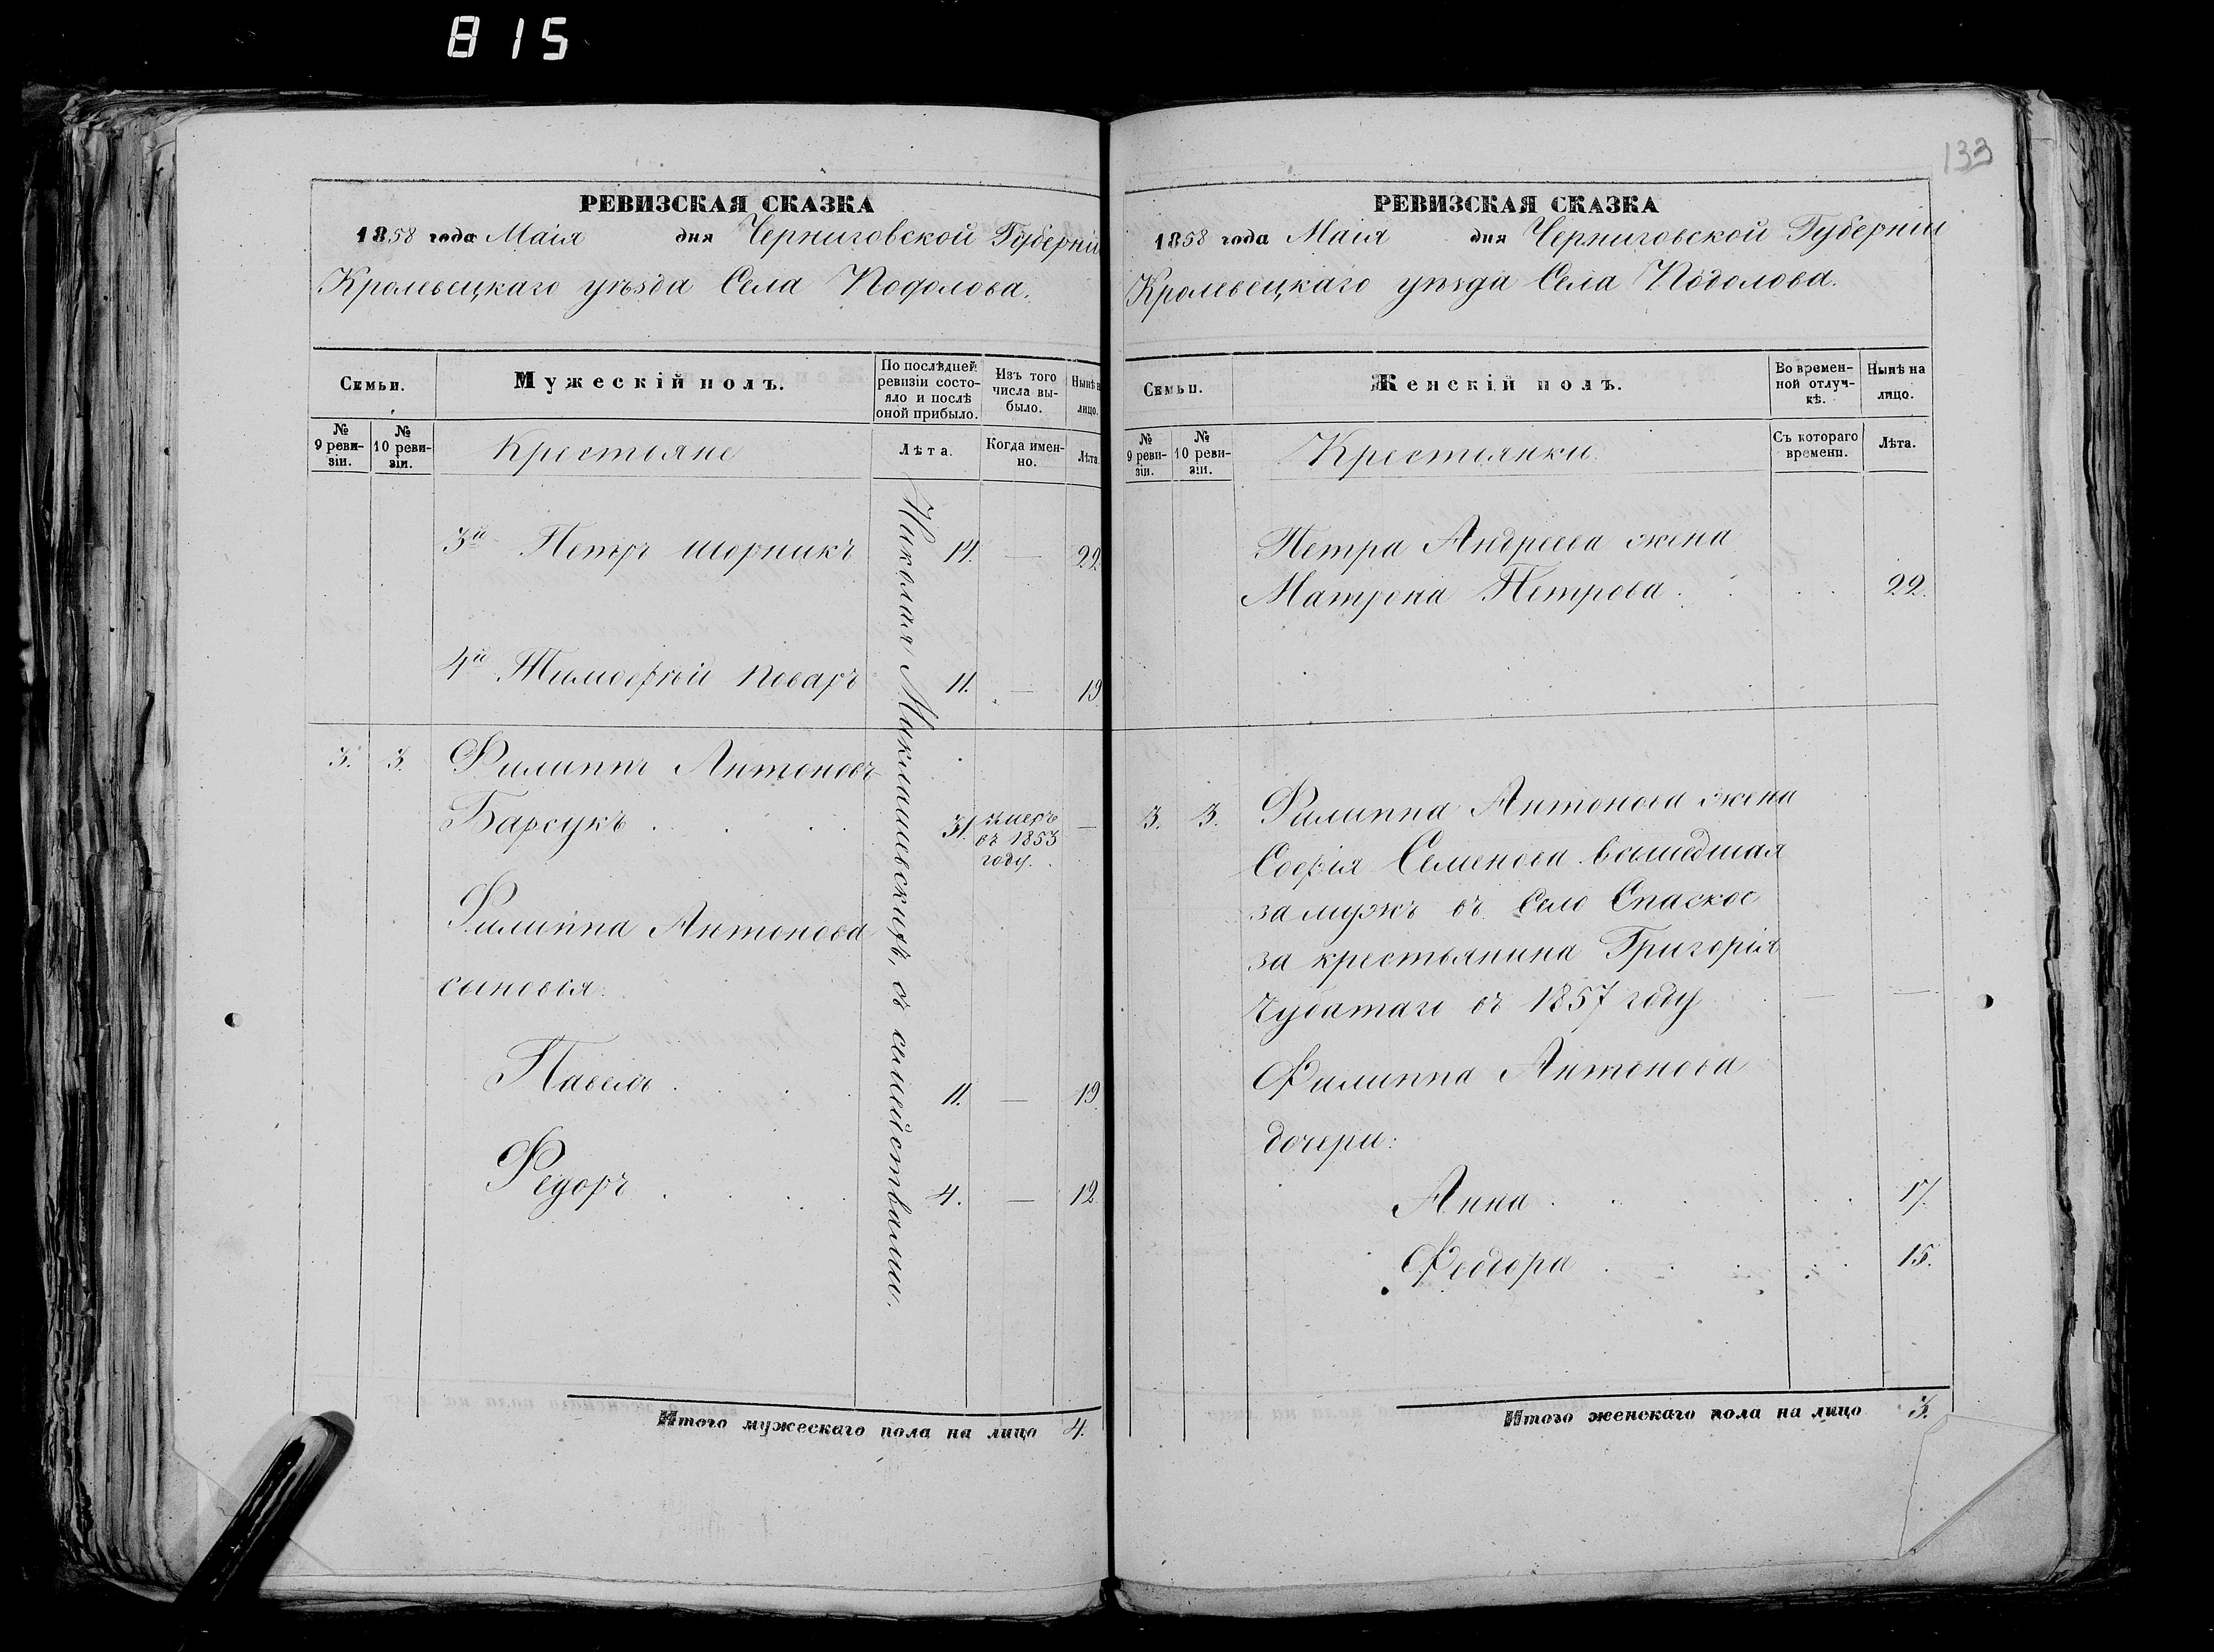 815
133
РЕВИЗСКАЯ СКАЗКА
1858 года Маія дня Черниговской Губерніи
Кролевецкаго уѣзда Села Подолова.
Семьи.
Мужескій полъ.
По послѣдней ревизіи состояло и послѣ оной прибыло.
Изъ того числа выбыло.
Нынѣ на лицо.
№ 9 ревизіи.
№ 10 ревизіи.
Крестьяне
Лѣта.
Когда именно.
Лѣта.
3й Петръ шорникъ 14. — 22
4й Тимофѣй поваръ 11. — 19
3. 3. Филиппъ Антоновъ
Барсукъ . . . . 31. умеръ въ 1853 году. —
Филиппа Антонова
сыновья:
Павелъ . . . 11. — 19
Федоръ . . . 4. — 12
Николая Миклашевскихъ, съ семействами.
Итого мужескаго пола на лицо 4.
РЕВИЗСКАЯ СКАЗКА
1858 года Маія дня Черниговской Губерніи
Кролевецкаго уѣзда Села Подолова.
Семьи.
Женскій полъ.
Во временной отлучкѣ.
Нынѣ на лицо.
№ 9 ревизіи.
№ 10 ревизіи.
Крестьянки.
Съ котораго времени.
Лѣта.
Петра Андреева жена
Матрона Петрова . . . . 22.
3. 3. Филиппа Антонова жена
Софія Семенова вышедшая
замужъ въ Село Спаское
за крестьянина Григорія
Чубатаго въ 1857 году — —
Филиппа Антонова
дочери:
Анна . . . . . 17.
Федора . . . . . 15.
Итого женскаго пола на лицо 3.